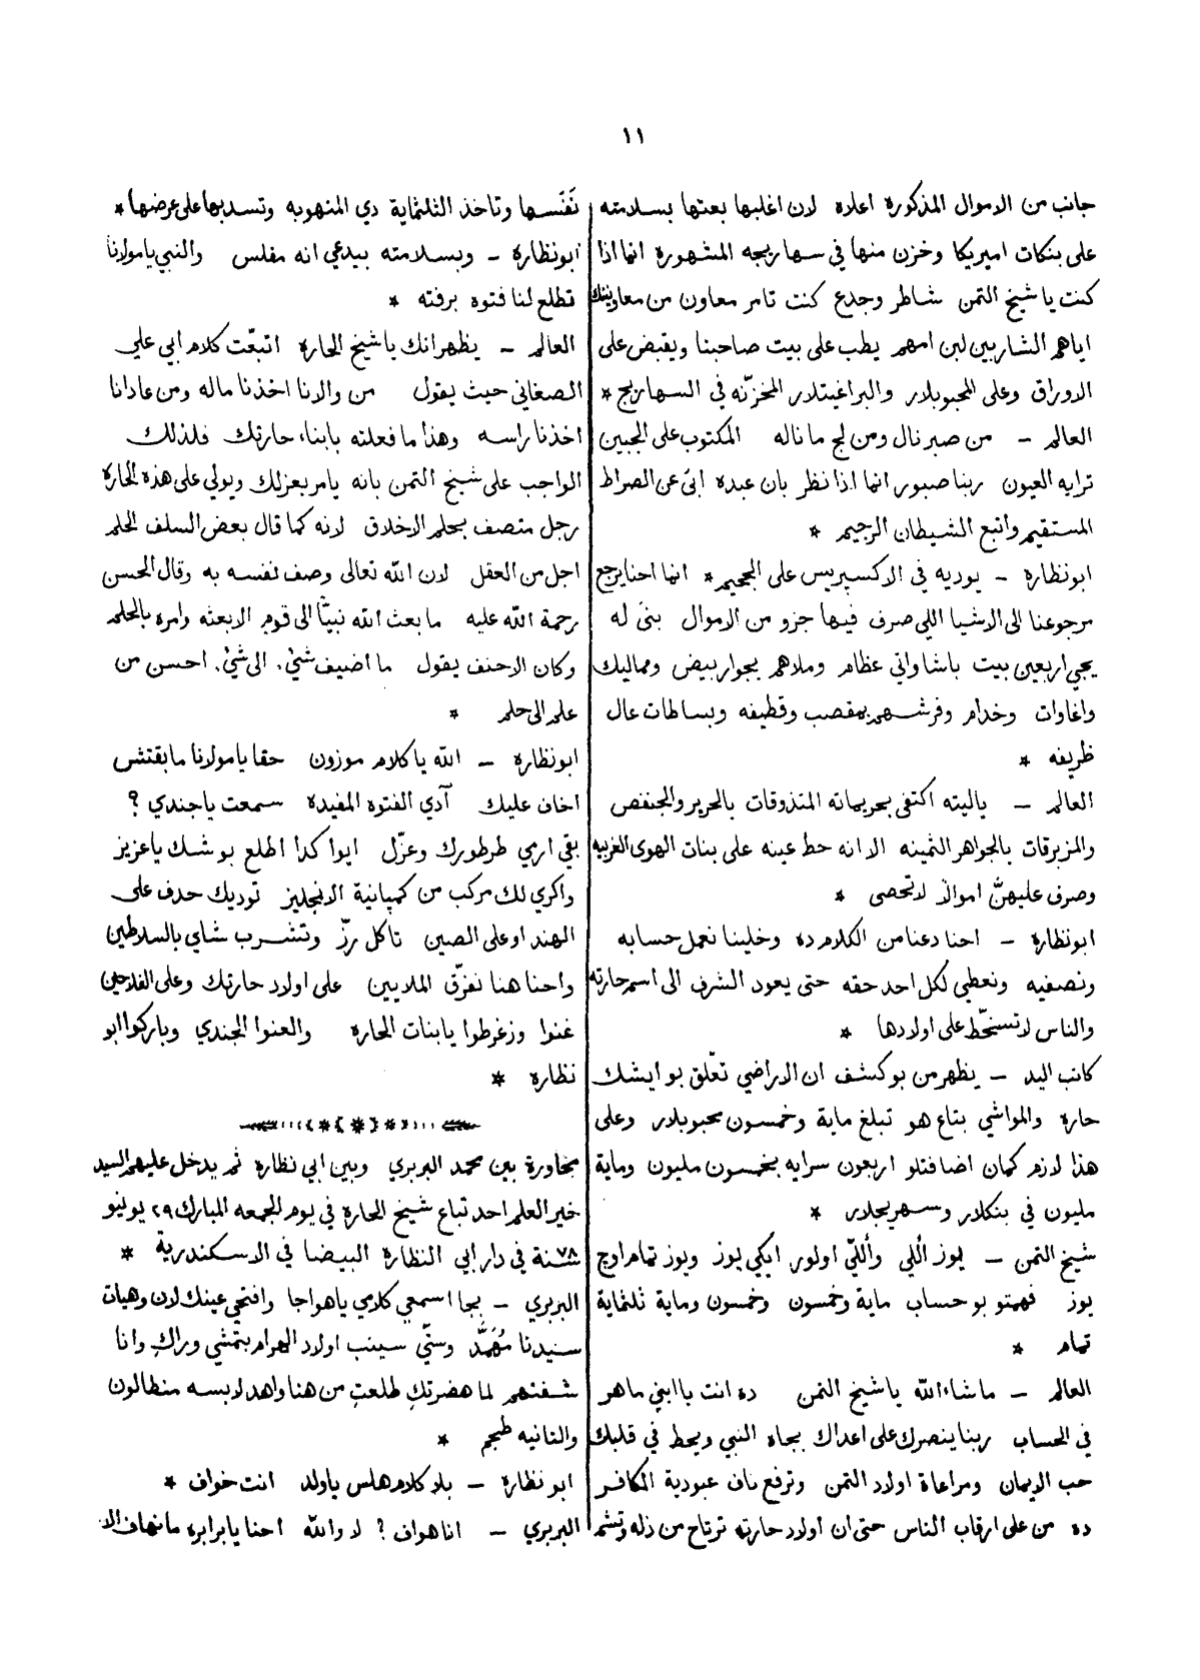 ١١
جانب من الاموال المذكورة اعلاه لان اغلبها بعتها بسلامته
على بنكات اميريكا وخزن منها في سهاريجه المشهورة انما اذا
كنت يا شيخ التمن شاطر وجدع كنت تامر معاون من معاونينك
اياهم الشاربين لبن امهم يطب على بيت صاحبنا ويقبض على
الاوراق وعلى المحبوبلار والبراغيتلار المخزنّه في السهاريج *
العالم – من صبر نال ومن لج ما ناله المكتوب على الجبين
ترايه العيون ربنا صبور انما اذا نظر بان عبده ابى عن الصراط
المستقيم واتبع الشيطان الرجيم *
ابو نظارة – يوديه في الاكسپريس على الجحيم * انما احنا يرجع
مرجوعنا الى الاشيا اللي صرف فيها جزو من الاموال بنى له
يجي اربعين بيت باشاواتي عظام وملاهم بجوار بيض ومماليك
واغاوات وخدام وفرشهم بمقصب وقطيفه وبساطات عال
ظريفه *
العالم – ياليته اكتفى بحريماته المتذوقات بالحرير والجنفص
والمزبرقات بالجواهر الثمينه الا انه حط عينه على بنات الهوى الغربيه
وصرف عليهنّ اموالاً لا تحصى *
ابو نظارة – احنا دعنا من الكلام ده وخلينا نعمل حسابه
ونصفيه ونعطي لكل احد حقه حتى يعود الشرف الى اسم حارته
والناس لا تستحّط على اولادها *
كاتب اليد – يظهر من بو كشف ان الاراضي تعلّق بو ايشك
حارة والمواشي بتاع هو تبلغ ماية وخمسون محبوبلار وعلى
هذا لازم كمان اضافتلو اربعون سرايه بخمسون مليون وماية
مليون في بنكلار وسهريجلار *
شيخ التمن – يوز اللي واللّي اولور ايكي يوز ويوز تمام اوچ
يوز فهمتو بو حساب ماية وخمسون وخمسون وماية ثلثماية
تمام *
العالم – ما شاء الله يا شيخ التمن ده انت يا ابني ماهر
في الحساب ربنا ينصرك على اعداك بجاه النبي ويحط في قلبك
حب الايمان ومراعاة اولاد التمن وترفع ناف عبودية الكافر
ده من على ارقاب الناس حتى ان اولاد حارته ترتاح من ذله وتشم
نَفَسها وتاخذ الثلثماية دي المنهوبه وتسد بها على عرضها *
ابو نظارة – وبسلامته بيدعي انه مفلس والنبي يا مولانا
تطلع لنا فتوه برفته *
العالم – يظهر انك يا شيخ الحارة اتبعّت كلام ابي علي
الصغاني حيث يقول من والانا اخذنا ماله ومن عادانا
اخذنا راسه وهذا ما فعلته بابناء حارتك فلذلك
الواجب على شيخ التمن بانه يامر بعزلك ويولي على هذه الحارة
رجل متصف بحلم الاخلاق لانه كما قال بعض السلف الحلم
اجل من العقل لان الله تعالى وصف نفسه به وقال الحسن
رحمة الله عليه ما بعث الله نبيّاً الى قوم الا بعثه وامره بالحلم
وكان الاحنف يقول ما اضيف شيْء الى شيْء احسن من
علم الى حلم *
ابو نظارة – الله يا كلام موزون حقا يا مولانا ما بقتش
اخاف عليك آدي الفتوه المفيده سمعت يا جندي ؟
بقي ارمي طرطورك وعزّل ايوا كدا اطلع بو شك يا عزيز
واكري لك مركب من كمپانية الانجليز توديك حدف على
الهند او على الصين تاكل رزّ وتشرب شاي بالسلاطين
واحنا هنا نفرّق الملايين على اولاد حارتك وعلى الفلاحين
غنوا وزغرطوا يا بنات الحاره والعنوا الجندي وباركوا ابو
نظاره *
محاورة بين محمد البربري وبين ابي نظارة ثم يدخل عليهم السيد
خير العلم احد تباع شيخ الحارة في يوم الجمعه المبارك ٢٩ يونيو
٧٨ سنة في دار ابي النظارة البيضا في الاسكندرية *
البربري – بجا اسمعي كلامي يا هواجا وافتحي عينك لان وهيات
سيدنا مُهَمَّد وستّي سينب اولاد الهرام بتمشي وراكِ وانا
شفتهم لما هضرتكِ طلعتِ من هنا واهد لابسه منطالون
والتانيه طجم *
ابو نظارة – بلا كلام هلس يا ولد انت خواف *
البربري – انا هواف ؟ لا والله احنا يا برابره ما نهاف الا